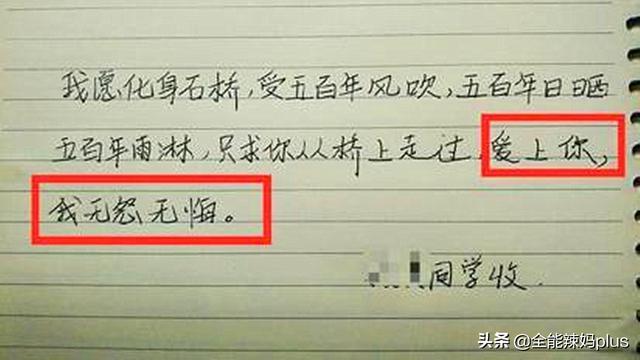 我愿化身石桥,受五百年风吹,五百年日晒
五百年雨淋,只求你从桥上走过,爱上你,
我无怨无悔。
同学收.
头条 @全能辣妈plus